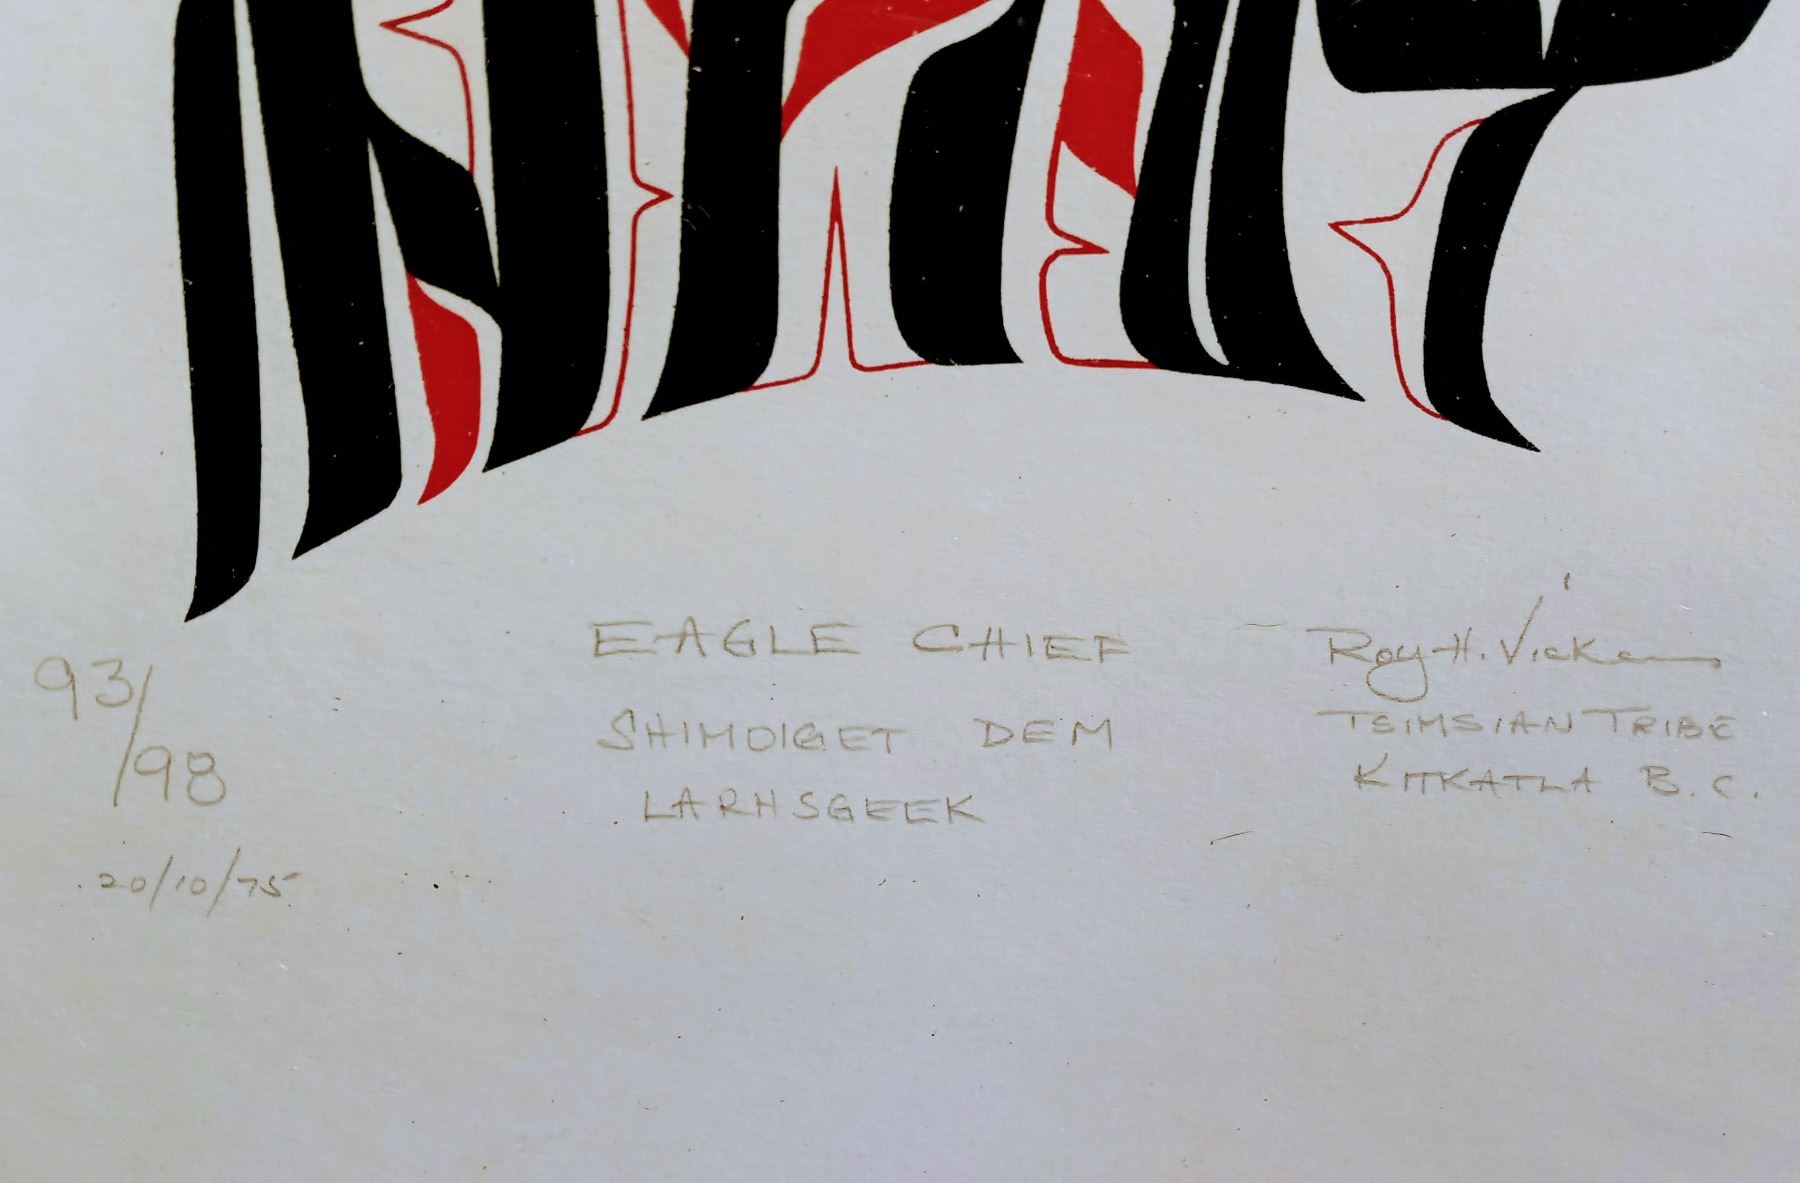 93/98
20/10/75
EAGLE CHIEF
SHIMOIGET DEM
LARHSGEEK
Roy H. Vickers
TSIMSIAN TRIBE
KITKATLA B.C.